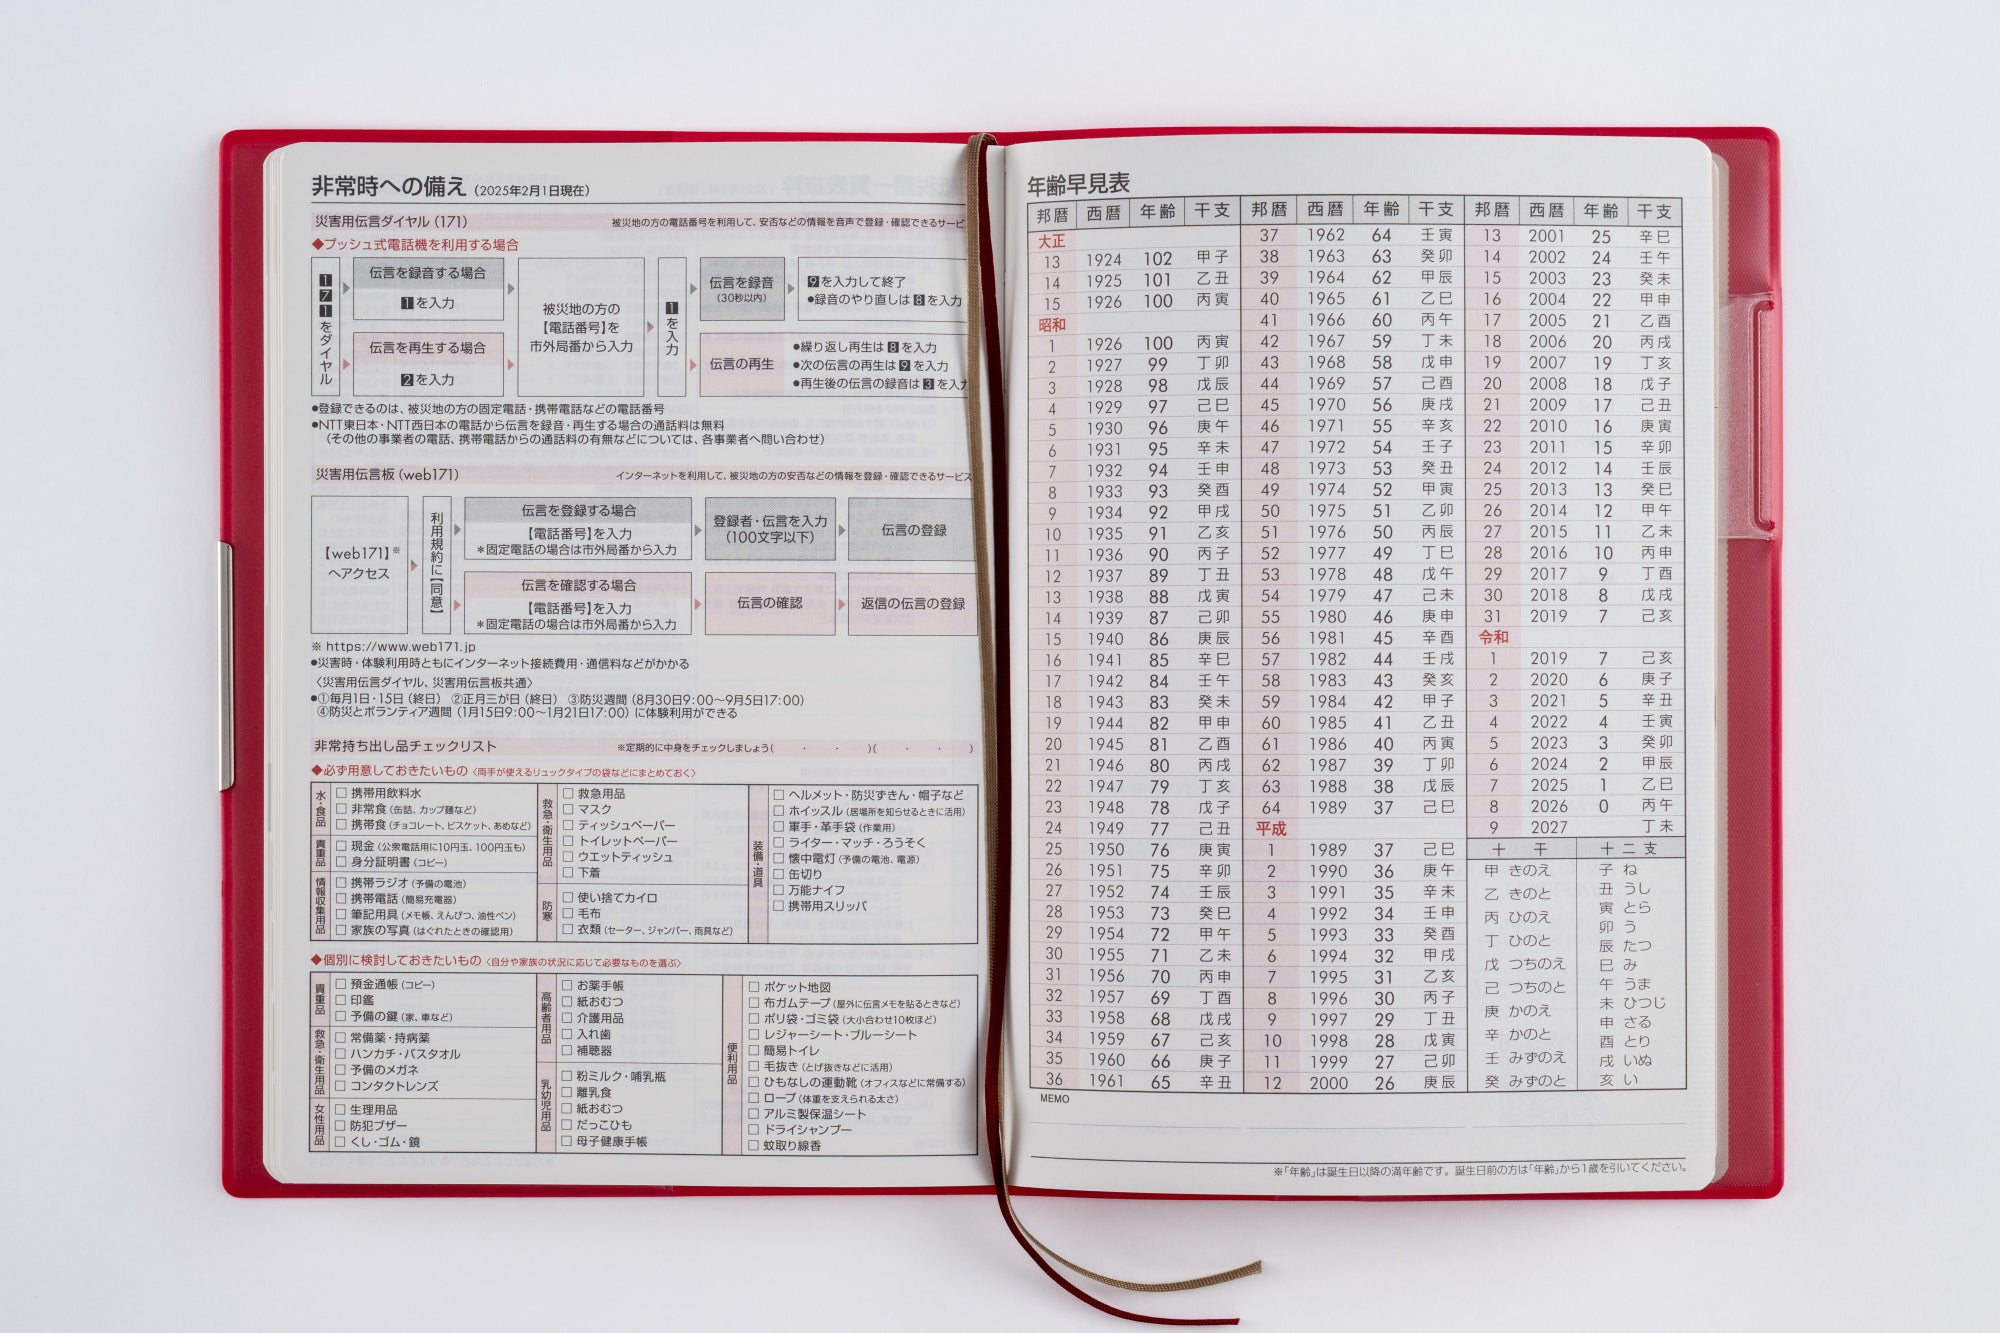 非常時への備え（2025年2月1日現在）
災害用伝言ダイヤル（171）　被災地の方の電話番号を利用して、安否などの情報を音声で登録・確認できるサービ
◆プッシュ式電話機を利用する場合
171をダイヤル
伝言を録音する場合
1を入力
伝言を再生する場合
2を入力
被災地の方の
【電話番号】を
市外局番から入力
1を入力
伝言を録音
（30秒以内）
9を入力して終了
●録音のやり直しは8を入力
伝言の再生
●繰り返し再生は8を入力
●次の伝言の再生は9を入力
●再生後の伝言の録音は3を入力
●登録できるのは、被災地の方の固定電話・携帯電話などの電話番号
●NTT東日本・NTT西日本の電話から伝言を録音・再生する場合の通話料は無料
（その他の事業者の電話、携帯電話からの通話料の有無などについては、各事業者へ問い合わせ）
災害用伝言板（web171）　インターネットを利用して、被災地の方の安否などの情報を登録・確認できるサービス
【web171】※
へアクセス
利用規約に【同意】
伝言を登録する場合
【電話番号】を入力
＊固定電話の場合は市外局番から入力
登録者・伝言を入力
（100文字以下）
伝言の登録
伝言を確認する場合
【電話番号】を入力
＊固定電話の場合は市外局番から入力
伝言の確認
返信の伝言の登録
※ https://www.web171.jp
●災害時・体験利用時ともにインターネット接続費用・通信料などがかかる
〈災害用伝言ダイヤル、災害用伝言板共通〉
●①毎月1日・15日（終日）　②正月三が日（終日）　③防災週間（8月30日9：00～9月5日17：00）
④防災とボランティア週間（1月15日9：00～1月21日17：00）に体験利用ができる
非常持ち出し品チェックリスト　※定期的に中身をチェックしましょう（　・　・　）（　・　・　）
◆必ず用意しておきたいもの〈両手が使えるリュックタイプの袋などにまとめておく〉
水・食品
□ 携帯用飲料水
□ 非常食（缶詰、カップ麺など）
□ 携帯食（チョコレート、ビスケット、あめなど）
貴重品
□ 現金（公衆電話用に10円玉、100円玉も）
□ 身分証明書（コピー）
情報収集用品
□ 携帯ラジオ（予備の電池）
□ 携帯電話（簡易充電器）
□ 筆記用具（メモ帳、えんぴつ、油性ペン）
□ 家族の写真（はぐれたときの確認用）
救急・衛生用品
□ 救急用品
□ マスク
□ ティッシュペーパー
□ トイレットペーパー
□ ウエットティッシュ
□ 下着
防寒
□ 使い捨てカイロ
□ 毛布
□ 衣類（セーター、ジャンパー、雨具など）
装備・道具
□ ヘルメット・防災ずきん・帽子など
□ ホイッスル（居場所を知らせるときに活用）
□ 軍手・革手袋（作業用）
□ ライター・マッチ・ろうそく
□ 懐中電灯（予備の電池、電源）
□ 缶切り
□ 万能ナイフ
□ 携帯用スリッパ
◆個別に検討しておきたいもの〈自分や家族の状況に応じて必要なものを選ぶ〉
貴重品
□ 預金通帳（コピー）
□ 印鑑
□ 予備の鍵（家、車など）
救急・衛生用品
□ 常備薬・持病薬
□ ハンカチ・バスタオル
□ 予備のメガネ
□ コンタクトレンズ
女性用品
□ 生理用品
□ 防犯ブザー
□ くし・ゴム・鏡
高齢者用品
□ お薬手帳
□ 紙おむつ
□ 介護用品
□ 入れ歯
□ 補聴器
乳幼児用品
□ 粉ミルク・哺乳瓶
□ 離乳食
□ 紙おむつ
□ だっこひも
□ 母子健康手帳
便利用品
□ ポケット地図
□ 布ガムテープ（屋外に伝言メモを貼るときなど）
□ ポリ袋・ゴミ袋（大小合わせ10枚ほど）
□ レジャーシート・ブルーシート
□ 簡易トイレ
□ 毛抜き（とげ抜きなどに活用）
□ ひもなしの運動靴（オフィスなどに常備する）
□ ロープ（体重を支えられる太さ）
□ アルミ製保温シート
□ ドライシャンプー
□ 蚊取り線香
年齢早見表
邦暦 西暦 年齢 干支
大正
13 1924 102 甲子
14 1925 101 乙丑
15 1926 100 丙寅
昭和
1 1926 100 丙寅
2 1927 99 丁卯
3 1928 98 戊辰
4 1929 97 己巳
5 1930 96 庚午
6 1931 95 辛未
7 1932 94 壬申
8 1933 93 癸酉
9 1934 92 甲戌
10 1935 91 乙亥
11 1936 90 丙子
12 1937 89 丁丑
13 1938 88 戊寅
14 1939 87 己卯
15 1940 86 庚辰
16 1941 85 辛巳
17 1942 84 壬午
18 1943 83 癸未
19 1944 82 甲申
20 1945 81 乙酉
21 1946 80 丙戌
22 1947 79 丁亥
23 1948 78 戊子
24 1949 77 己丑
25 1950 76 庚寅
26 1951 75 辛卯
27 1952 74 壬辰
28 1953 73 癸巳
29 1954 72 甲午
30 1955 71 乙未
31 1956 70 丙申
32 1957 69 丁酉
33 1958 68 戊戌
34 1959 67 己亥
35 1960 66 庚子
36 1961 65 辛丑
邦暦 西暦 年齢 干支
37 1962 64 壬寅
38 1963 63 癸卯
39 1964 62 甲辰
40 1965 61 乙巳
41 1966 60 丙午
42 1967 59 丁未
43 1968 58 戊申
44 1969 57 己酉
45 1970 56 庚戌
46 1971 55 辛亥
47 1972 54 壬子
48 1973 53 癸丑
49 1974 52 甲寅
50 1975 51 乙卯
51 1976 50 丙辰
52 1977 49 丁巳
53 1978 48 戊午
54 1979 47 己未
55 1980 46 庚申
56 1981 45 辛酉
57 1982 44 壬戌
58 1983 43 癸亥
59 1984 42 甲子
60 1985 41 乙丑
61 1986 40 丙寅
62 1987 39 丁卯
63 1988 38 戊辰
64 1989 37 己巳
平成
1 1989 37 己巳
2 1990 36 庚午
3 1991 35 辛未
4 1992 34 壬申
5 1993 33 癸酉
6 1994 32 甲戌
7 1995 31 乙亥
8 1996 30 丙子
9 1997 29 丁丑
10 1998 28 戊寅
11 1999 27 己卯
12 2000 26 庚辰
邦暦 西暦 年齢 干支
13 2001 25 辛巳
14 2002 24 壬午
15 2003 23 癸未
16 2004 22 甲申
17 2005 21 乙酉
18 2006 20 丙戌
19 2007 19 丁亥
20 2008 18 戊子
21 2009 17 己丑
22 2010 16 庚寅
23 2011 15 辛卯
24 2012 14 壬辰
25 2013 13 癸巳
26 2014 12 甲午
27 2015 11 乙未
28 2016 10 丙申
29 2017 9 丁酉
30 2018 8 戊戌
31 2019 7 己亥
令和
1 2019 7 己亥
2 2020 6 庚子
3 2021 5 辛丑
4 2022 4 壬寅
5 2023 3 癸卯
6 2024 2 甲辰
7 2025 1 乙巳
8 2026 0 丙午
9 2027 丁未
十干
甲 きのえ
乙 きのと
丙 ひのえ
丁 ひのと
戊 つちのえ
己 つちのと
庚 かのえ
辛 かのと
壬 みずのえ
癸 みずのと
十二支
子 ね
丑 うし
寅 とら
卯 う
辰 たつ
巳 み
午 うま
未 ひつじ
申 さる
酉 とり
戌 いぬ
亥 い
MEMO
※「年齢」は誕生日以降の満年齢です。誕生日前の方は「年齢」から1歳を引いてください。